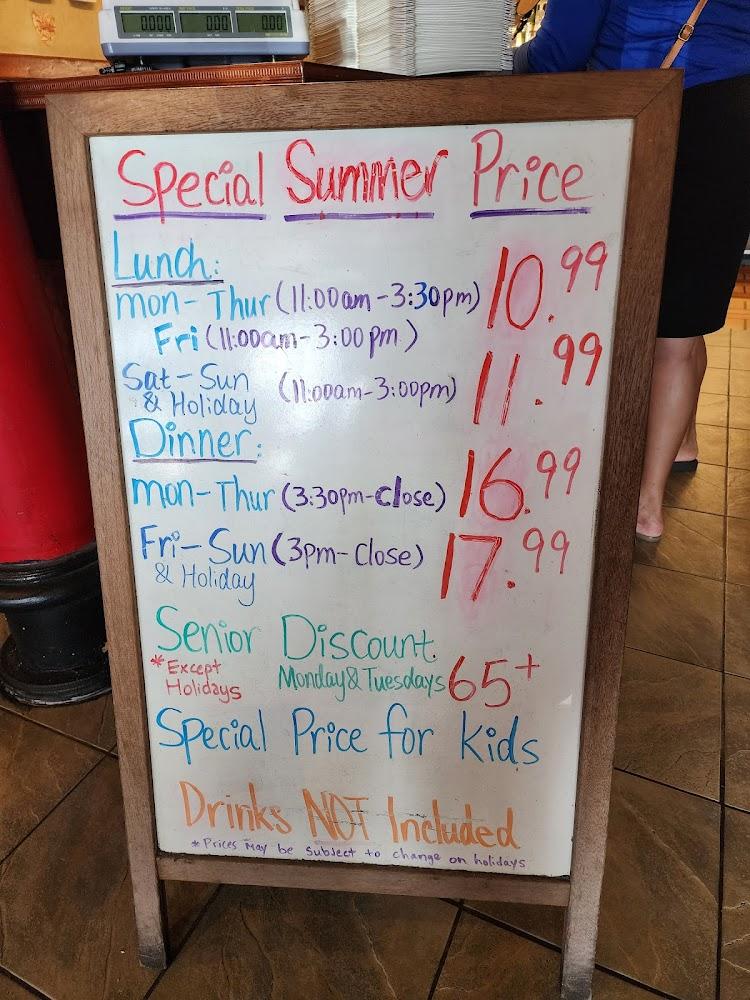 0.00 0.00 0.00
Special Summer Price
Lunch:
mon-Thur (11:00am-3:30pm) 10.99
Fri (11:00am-3:00pm)
Sat-Sun (11:00am-3:00pm) 11.99
& Holiday
Dinner:
mon-Thur (3:30pm-Close) 16.99
Fri-Sun (3pm-Close) 17.99
& Holiday
Senior Discount
*Except Monday & Tuesdays 65+
Holidays
Special Price for kids
Drinks NOT Included
*Prices May be Subject to change on holidays